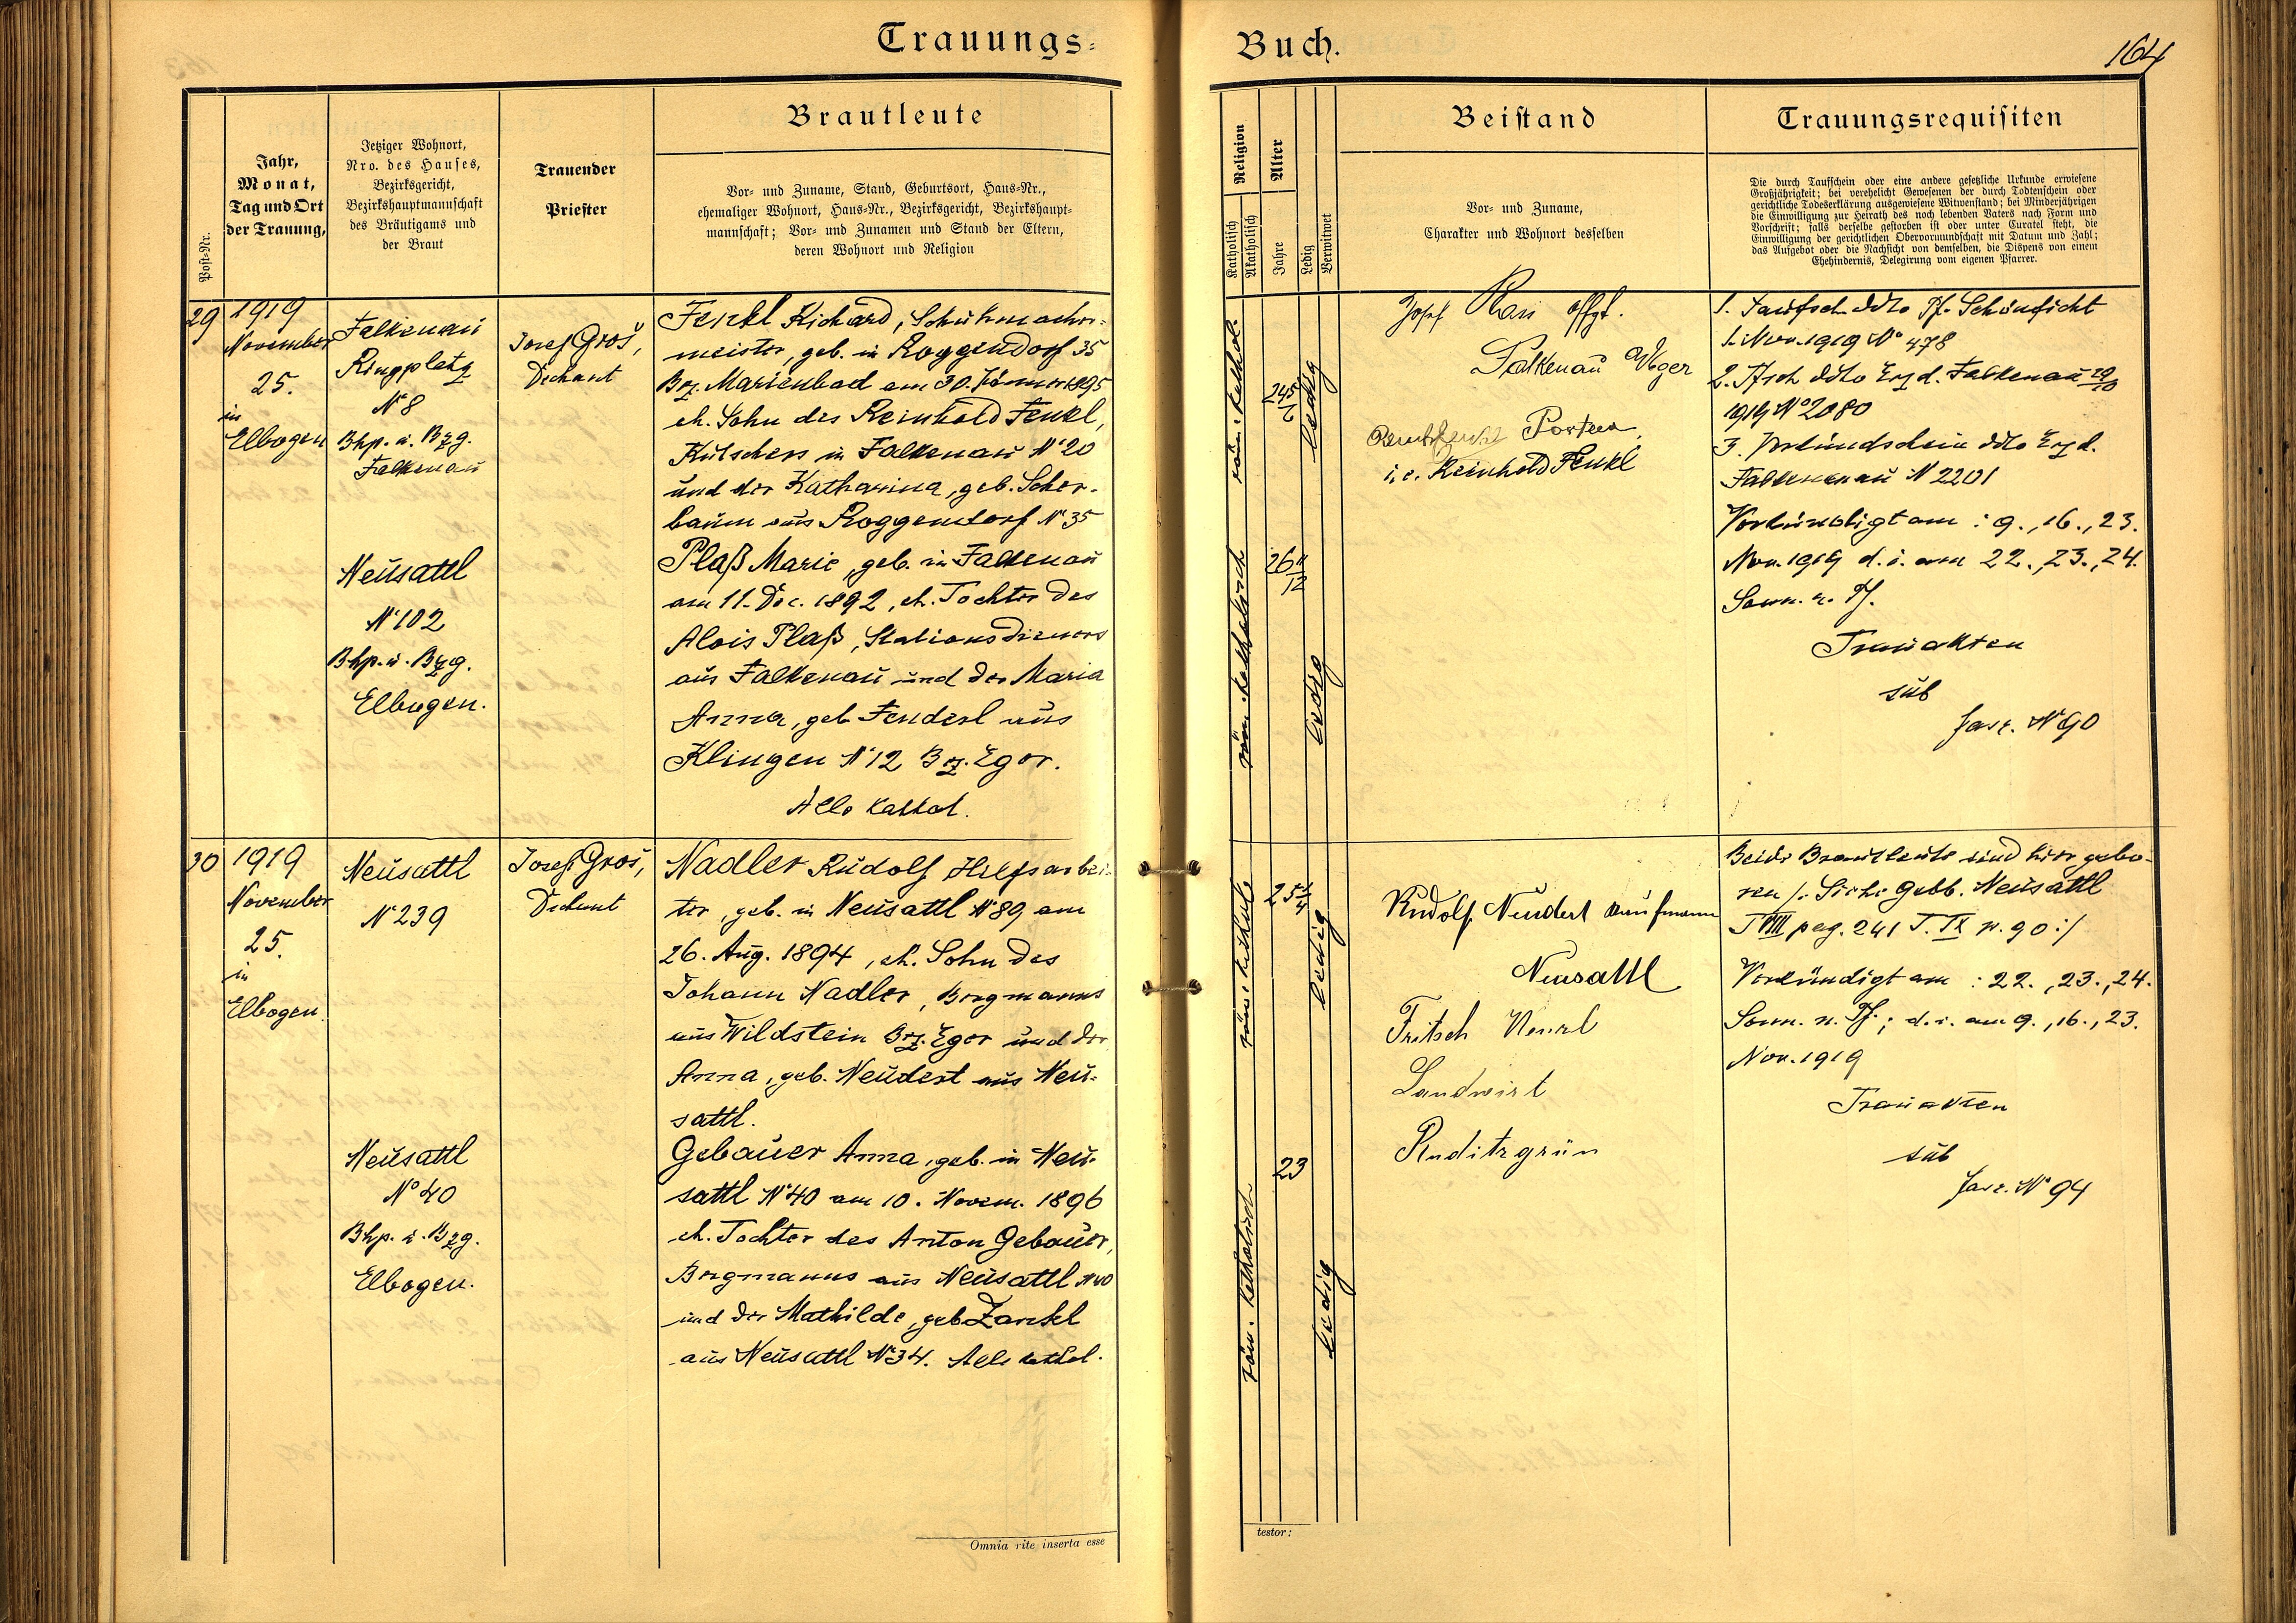 Trauungs-
Buch.
164
Post-Nr.
Jahr,
Monat,
Tag und Ort
der Trauung,
Jetziger Wohnort,
Nro. des Hauses,
Bezirksgericht,
Bezirkshauptmannschaft
des Bräutigams und
der Braut
Trauender
Priester
Brautleute
Vor- und Zuname, Stand, Geburtsort, Haus-Nr.,
ehemaliger Wohnort, Haus-Nr., Bezirksgericht, Bezirkshaupt-
mannschaft; Vor- und Zunamen und Stand der Eltern,
deren Wohnort und Religion
Religion
Katholisch
Akatholisch
Alter
Jahre
Ledig
Verwitwet
Beistand
Vor- und Zuname,
Charakter und Wohnort desselben
Trauungsrequisiten
Die durch Taufschein oder eine andere gesetzliche Urkunde erwiesene
Großjährigkeit; bei verehelicht Gewesenen der durch Todtenschein oder
gerichtliche Todeserklärung ausgewiesene Witwenstand; bei Minderjährigen
die Einwilligung zur Heirath des noch lebenden Vaters nach Form und
Vorschrift; falls derselbe gestorben ist oder unter Curatel steht, die
Einwilligung der gerichtlichen Obervormundschaft mit Datum und Zahl;
das Aufgebot oder die Nachsicht von demselben, die Dispens von einem
Ehehindernis, Delegirung vom eigenen Pfarrer.
29
1919
November
25.
in
Elbogen
Falkenau
Ringplatz
N° 8
Bhp. u. Bzg.
Falkenau
Josef Groš,
Dechant
Fenkl Richard, Schuhmacher-
meister, geb. in Roggendorf 35
Bez. Marienbad am 30. Jänner 1895
eh. Sohn des Reinhold Fenkl,
Kutschers in Falkenau N° 20
und der Katharina, geb. Scher-
baum aus Roggendorf N° 35
röm. kathol.
24 5/6
ledig
Josef
Falkenau a/Eger
i. e. Reinhold Fenkl
1. Taufsch. ddto Pf. Schönficht
1. Nov. 1919 N° 478
2. Tfsch ddto Erzd. Falkenau 29/10
1919 N° 2080
3. Verkündschein ddto Erzd.
Falkenau N 2201
Verkündigt am : 9., 16., 23.
Nov. 1919 d. i. am 22., 23., 24.
Sonn. n. Pf.
Trauakten
sub
fasc. N° 90
Neusattl
N° 102
Bhp. u. Bzg.
Elbogen.
Plaß Marie, geb. in Falkenau
am 11. Dec. 1892, eh. Tochter des
Alois Plaß, Stationsdieners
aus Falkenau und der Maria
Anna, geb. Fenderl aus
Klingen N° 12 Bez. Eger.
Alle kathol.
röm. katholisch
26 11/12
ledig
30
1919
November
25.
in
Elbogen.
Neusattl
N° 239
Josef Groš,
Dechant
Nadler Rudolf Hilfsarbei-
ter, geb. in Neusattl N° 89 am
26. Aug. 1894, eh. Sohn des
Johann Nadler, Bergmanns
aus Wildstein Bez. Eger und der
Anna, geb. Neudert aus Neu-
sattl.
25 1/4
ledig
Rudolf Neudert Kaufmann
Neusattl
Fritsch Wenzl
Landwirt
Ruditzgrün
Beide Brautleute sind hier gebo-
ren /: Siehe Gebb. Neusattl
T VIII pag. 241 T. IX p. 90 :/
Verkündigt am : 22., 23., 24.
Sonn. n. Pf.; d. i. am 9., 16., 23.
Nov. 1919
Trauakten
sub
fasc. N° 94
Neusattl
N° 40
Bhp. u. Bzg.
Elbogen.
Gebauer Anna, geb. in Neu-
sattl N° 40 am 10. Novem. 1896
eh. Tochter des Anton Gebauer,
Bergmanns aus Neusattl N 40
und der Mathilde, geb. Zankl
aus Neusattl N° 34. Alle kathol.
röm. katholisch
23
ledig
Omnia rite inserta esse
testor: